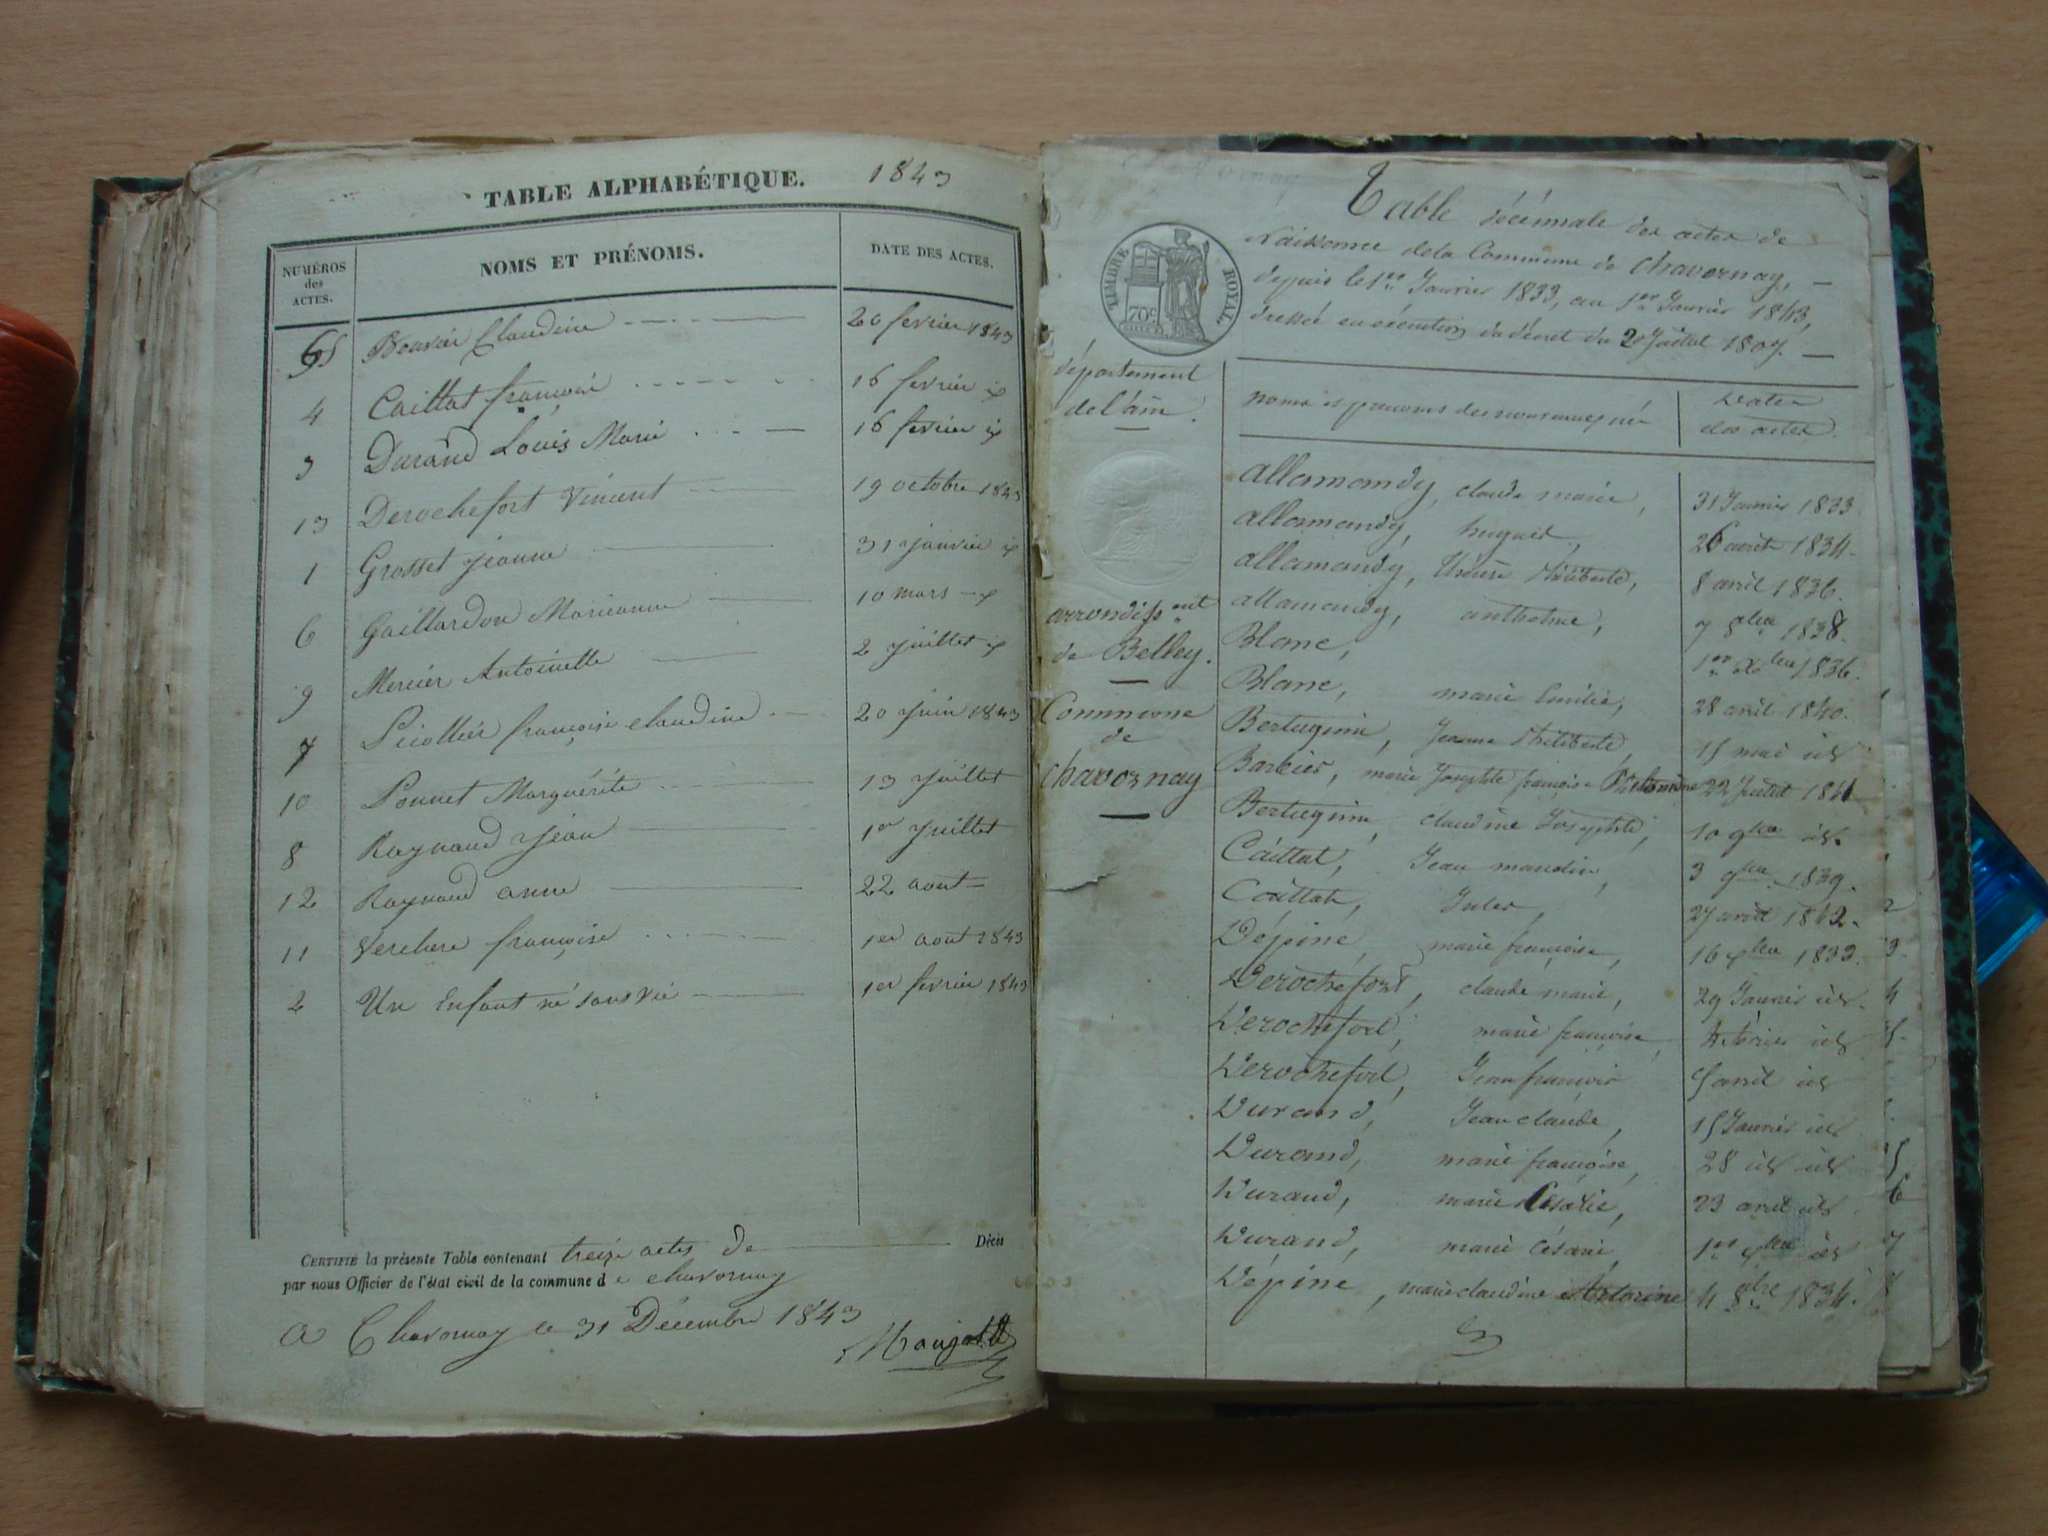 TABLE ALPHABÉTIQUE. 1843
NUMÉROS des ACTES. NOMS ET PRÉNOMS. DATE DES ACTES.
5 Bouvier Claudine 20 fevrier 1843
4 Caillat françois 16 fevrier
3 Durand Louis Marie 16 fevrier
13 Derochefort Vincent 19 octobre 1843
1 Grosset Jeanne 31 janvier
6 Gaillardon Marianne 10 mars
9 Mercier Antoinette 2 juillet
7 françoise claudine 20 juin 1843
10 Ponnet Marguérite 13 juillet
8 Raynaud Jean 1er juillet
12 Raynaud anne 22 aout
11 Verchere françoise 1er aout 1843
2 Un Enfant né sans vie 1er fevrier 1843
CERTIFIÉ la présente Table contenant treize actes de Décès
par nous Officier de l'état civil de la commune de chavornay
A Chavornay le 31 Décembre 1843
Table décennale des actes de
Naissance de la Commune de Chavornay,
depuis le 1er Janvier 1833, au 1er Janvier 1843,
dressée en exécution du décret du 20 Juillet 1807.
TIMBRE ROYAL
70c
département
de l'ain
arrondissent
de Belley.
Commune
de
chavornay
noms et prenoms des nouveaux nés dates des actes
allamandy, claude marie, 31 Janvier 1833
allamandy, hugues, 26 août 1834.
allamandy, 8 avril 1836.
allamandy, anthelme, 7 8bre 1838.
Blanc, 1er Xbre 1836.
Blanc, marie Emilie, 28 avril 1840.
Bertugini, Jeanne Philiberte, 15 mai id
Barbier, marie Josephte françoise Philomène 22 Juillet 1841
Bertugini, claudine Josephte, 10 9bre id.
Caillat, Jean 3 9bre 1839.
Caillat, Jules, 27 avril 1842.
Dépine, marie françoise, 16 1833.
Derochefort, claude marie, 29 Janvier id.
Derochefort, marie françoise, 4 février id
Derochefort, Jean françois 5 avril id
Durand, Jean claude, 15 Janvier id
Durand, marie françoise, 28 id id
Durand, marie 23 avril id
Durand, marie Césarie, 1er id
Dépine, marie claudine 4 8bre 1834.